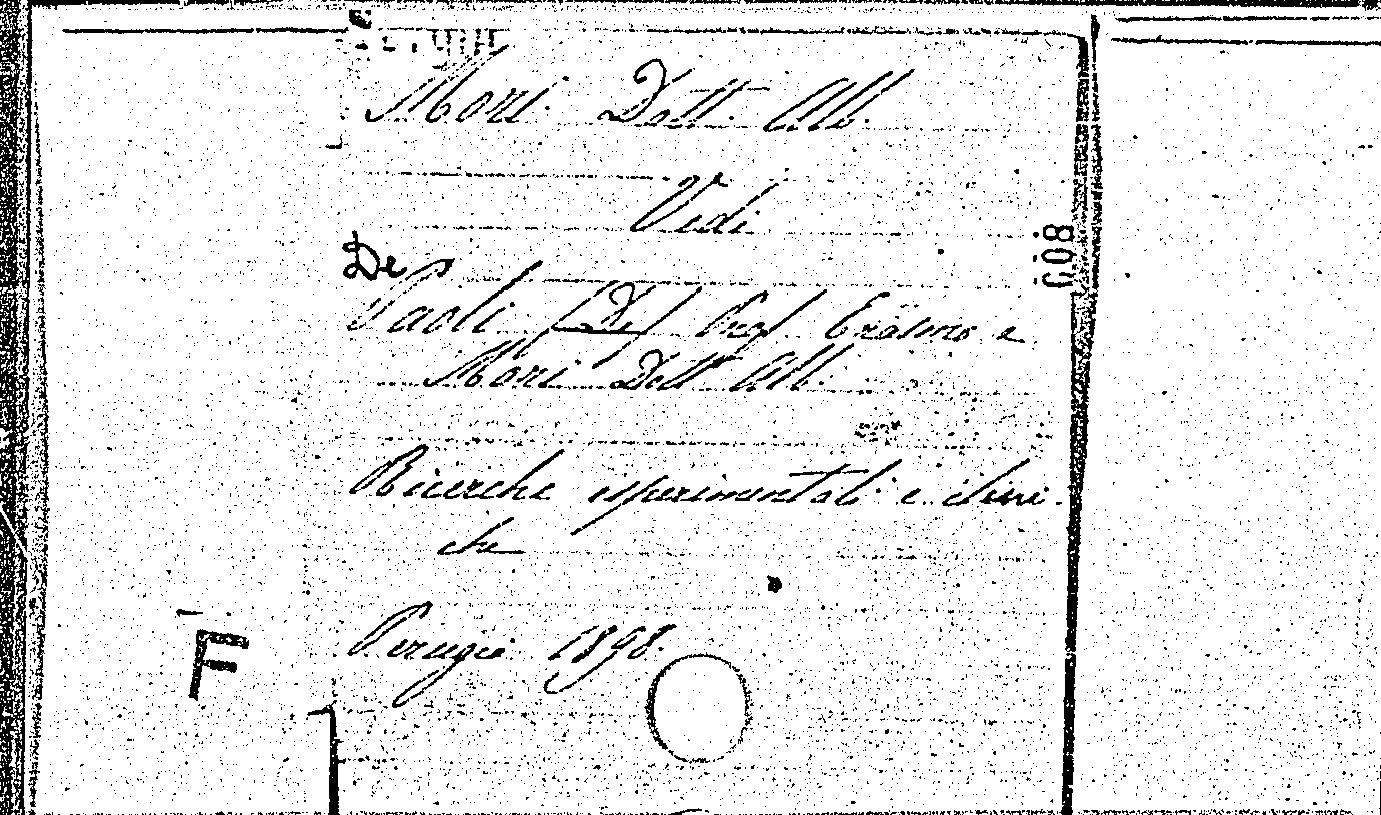 Mori Dott. Alb.
Vedi
De
Paoli (De) Prof. Erasmo e
Mori Dott. Alb.
Ricerche esperimentali e clini-
che
Perugia 1898.
F
608